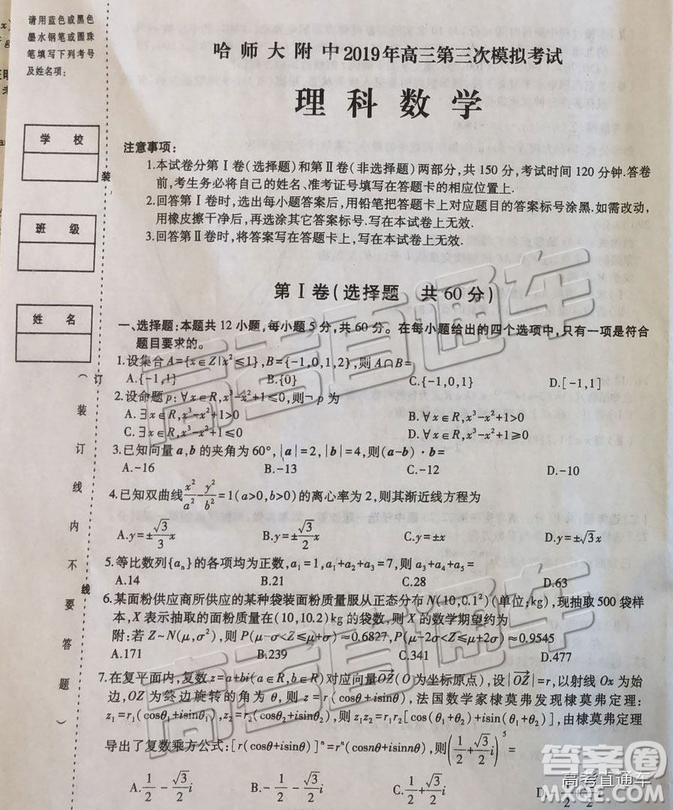 请用蓝色或黑色
墨水钢笔或圆珠
笔填写下列考号
及姓名项:
学 校
班 级
姓 名
装
订
线
(装订线内不要答题)
哈师大附中2019年高三第三次模拟考试
理科数学
注意事项:
1.本试卷分第Ⅰ卷(选择题)和第Ⅱ卷(非选择题)两部分,共150分,考试时间120分钟.答卷
前,考生务必将自己的姓名、准考证号填写在答题卡的相应位置上.
2.回答第Ⅰ卷时,选出每小题答案后,用铅笔把答题卡上对应题目的答案标号涂黑.如需改动,
用橡皮擦干净后,再选涂其它答案标号.写在本试卷上无效.
3.回答第Ⅱ卷时,将答案写在答题卡上,写在本试卷上无效.
第Ⅰ卷(选择题 共60分)
一、选择题:本题共12小题,每小题5分,共60分。在每小题给出的四个选项中,只有一项是符合
题目要求的。
1.设集合A={x∈Z|x²≤1},B={-1,0,1,2},则A∩B=
A.{-1,1} B.{0} C.{-1,0,1} D.[-1,1]
2.设命题p:∀x∈R,x³-x²+1≤0,则¬p为
A.∃x∈R,x³-x²+1>0 B.∀x∈R,x³-x²+1>0
C.∃x∈R,x³-x²+1≤0 D.∀x∈R,x³-x²+1≥0
3.已知向量a,b的夹角为60°,|a|=2,|b|=4,则(a-b)·b=
A.-16 B.-13 C.-12 D.-10
4.已知双曲线x²/a²-y²/b²=1(a>0,b>0)的离心率为2,则其渐近线方程为
A.y=±√3/3x B.y=±√3/2x C.y=±x D.y=±√3x
5.等比数列{aₙ}的各项均为正数,a₁=1,a₁+a₂+a₃=7,则a₃+a₄+a₅=
A.14 B.21 C.28 D.63
6.某面粉供应商所供应的某种袋装面粉质量服从正态分布N(10,0.1²)(单位:kg),现抽取500袋样
本,X表示抽取的面粉质量在(10,10.2)kg的袋数,则X的数学期望约为
附:若Z~N(μ,σ²),则P(μ-σ<Z≤μ+σ)≈0.6827,P(μ-2σ<Z≤μ+2σ)≈0.9545
A.171 B.239 C.341 D.477
7.在复平面内,复数z=a+bi(a∈R,b∈R)对应向量OZ(O为坐标原点),设|OZ|=r,以射线Ox为始
边,OZ为终边旋转的角为θ,则z=r(cosθ+isinθ),法国数学家棣莫弗发现棣莫弗定理:
z₁=r₁(cosθ₁+isinθ₁),z₂=r₂(cosθ₂+isinθ₂),则z₁z₂=r₁r₂[cos(θ₁+θ₂)+isin(θ₁+θ₂)],由棣莫弗定理
导出了复数乘方公式:[r(cosθ+isinθ)]ⁿ=rⁿ(cosnθ+isinnθ),则(1/2+√3/2i)⁵=
A.1/2-√3/2i B.-1/2-√3/2i C.1/2+√3/2i
高考直通车
高考直通车
高考直通车
答案圈